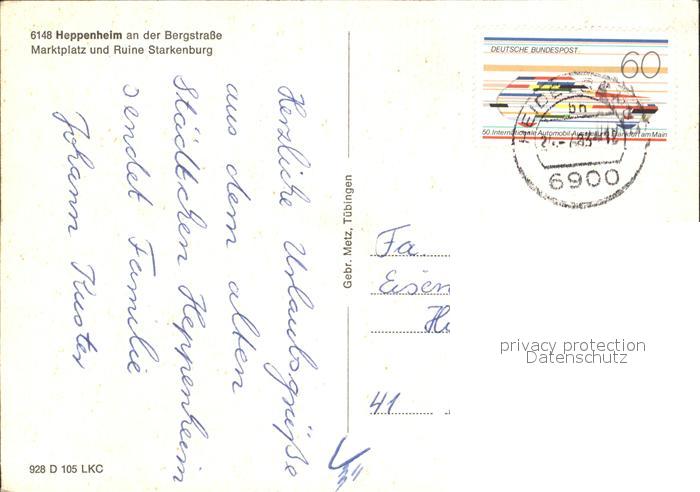 6148 Heppenheim an der Bergstraße
Marktplatz und Ruine Starkenburg
Herzliche Urlaubsgrüße
aus dem alten
Städtchen Heppenheim
sendet Familie
Johann Kuster
928 D 105 LKC
Gebr. Metz, Tübingen
DEUTSCHE BUNDESPOST
60
50. Internationale Automobil-Ausstellung Frankfurt am Main
6900
Fa.
Eisen
41
privacy protection
Datenschutz